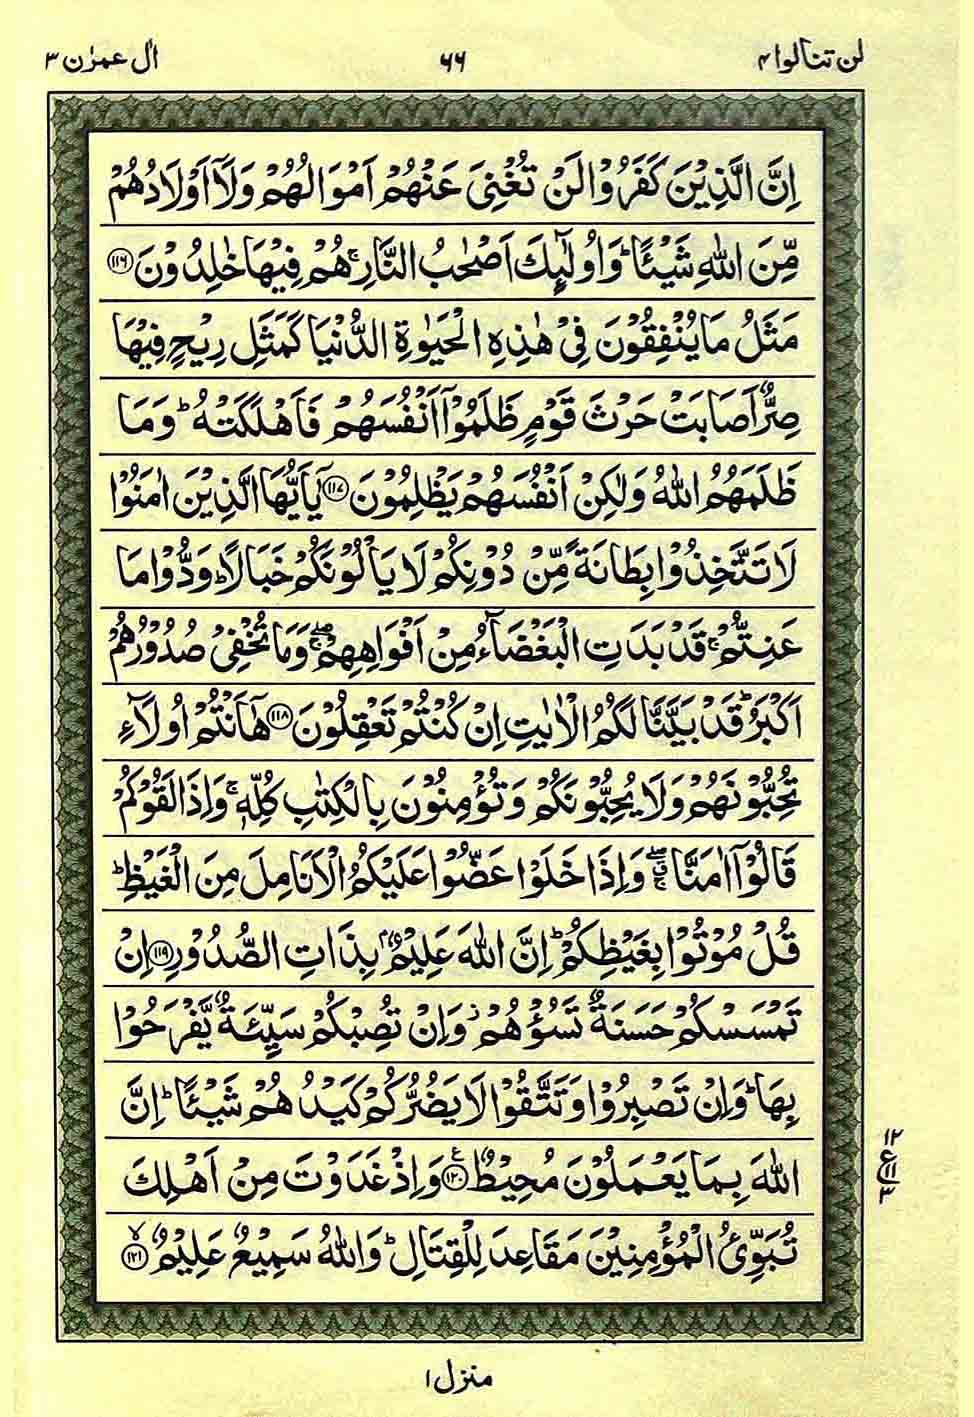 لن تنالوا ۴
۶۶
اٰل عمرٰن ۳
اِنَّ الَّذِيْنَ كَفَرُوْا لَنْ تُغْنِيَ عَنْهُمْ اَمْوَالُهُمْ وَلَاۤ اَوْلَادُهُمْ
مِّنَ اللّٰهِ شَيْـًٔا ؕ وَاُولٰٓئِكَ اَصْحٰبُ النَّارِ ۚ هُمْ فِيْهَا خٰلِدُوْنَ ۝۱۱۶
مَثَلُ مَا يُنْفِقُوْنَ فِيْ هٰذِهِ الْحَيٰوةِ الدُّنْيَا كَمَثَلِ رِيْحٍ فِيْهَا
صِرٌّ اَصَابَتْ حَرْثَ قَوْمٍ ظَلَمُوْۤا اَنْفُسَهُمْ فَاَهْلَكَتْهُ ؕ وَمَا
ظَلَمَهُمُ اللّٰهُ وَلٰكِنْ اَنْفُسَهُمْ يَظْلِمُوْنَ ۝۱۱۷ يٰۤاَيُّهَا الَّذِيْنَ اٰمَنُوْا
لَا تَتَّخِذُوْا بِطَانَةً مِّنْ دُوْنِكُمْ لَا يَاْلُوْنَكُمْ خَبَالًا ؕ وَدُّوْا مَا
عَنِتُّمْ ۚ قَدْ بَدَتِ الْبَغْضَآءُ مِنْ اَفْوَاهِهِمْ ۖۚ وَمَا تُخْفِيْ صُدُوْرُهُمْ
اَكْبَرُ ؕ قَدْ بَيَّنَّا لَكُمُ الْاٰيٰتِ اِنْ كُنْتُمْ تَعْقِلُوْنَ ۝۱۱۸ هٰۤاَنْتُمْ اُولَآءِ
تُحِبُّوْنَهُمْ وَلَا يُحِبُّوْنَكُمْ وَتُؤْمِنُوْنَ بِالْكِتٰبِ كُلِّهٖ ۚ وَاِذَا لَقُوْكُمْ
قَالُوْۤا اٰمَنَّا ۖۗۚ وَاِذَا خَلَوْا عَضُّوْا عَلَيْكُمُ الْاَنَامِلَ مِنَ الْغَيْظِ ؕ
قُلْ مُوْتُوْا بِغَيْظِكُمْ ؕ اِنَّ اللّٰهَ عَلِيْمٌۢ بِذَاتِ الصُّدُوْرِ ۝۱۱۹ اِنْ
تَمْسَسْكُمْ حَسَنَةٌ تَسُؤْهُمْ ۫ وَاِنْ تُصِبْكُمْ سَيِّئَةٌ يَّفْرَحُوْا
بِهَا ؕ وَاِنْ تَصْبِرُوْا وَتَتَّقُوْا لَا يَضُرُّكُمْ كَيْدُهُمْ شَيْـًٔا ؕ اِنَّ
اللّٰهَ بِمَا يَعْمَلُوْنَ مُحِيْطٌ ۝۱۲۰ ع وَاِذْ غَدَوْتَ مِنْ اَهْلِكَ
تُبَوِّئُ الْمُؤْمِنِيْنَ مَقَاعِدَ لِلْقِتَالِ ؕ وَاللّٰهُ سَمِيْعٌ عَلِيْمٌ ۝۱۲۱ۙ
۱۲
ع ۱۱
۳
منزل ۱